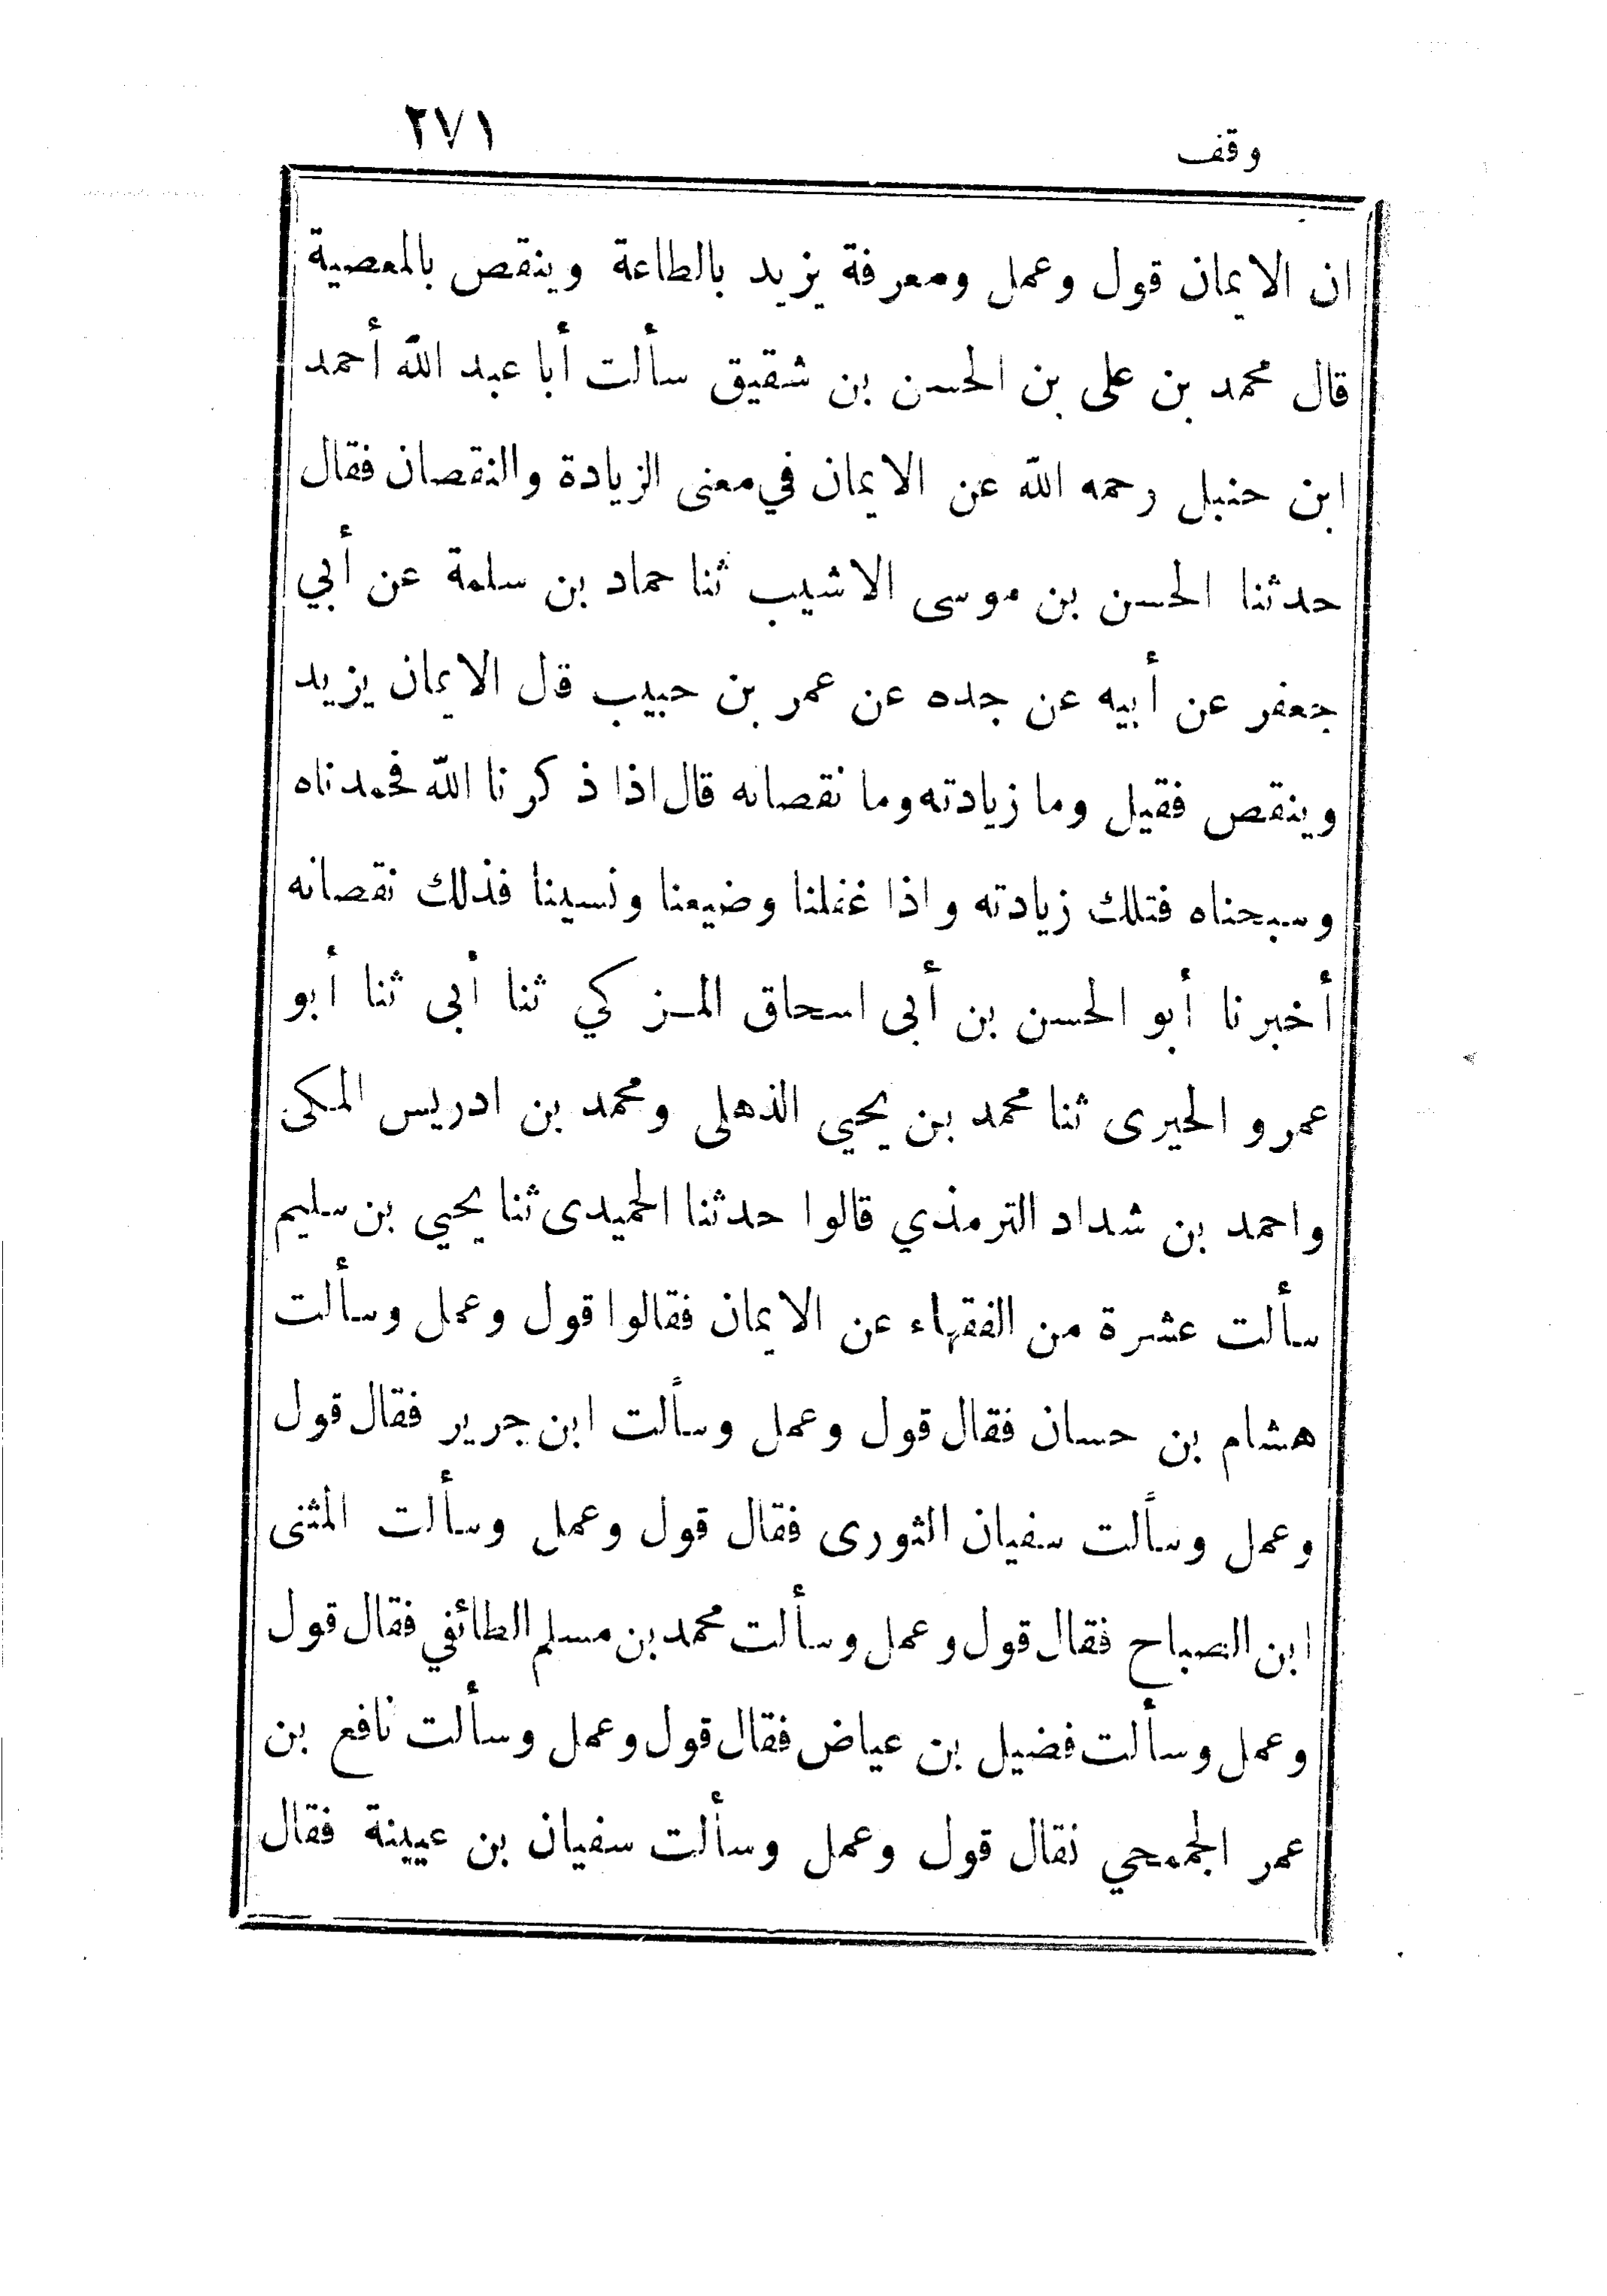 وقف ٢٧١
ان الايمان قول وعمل ومعرفة يزيد بالطاعة وينقص بالمعصية
قال محمد بن على بن الحسن بن شقيق سألت أبا عبد الله أحمد
ابن حنبل رحمه الله عن الايمان في معنى الزيادة والنقصان فقال
حدثنا الحسن بن موسى الاشيب ثنا حماد بن سلمة عن أبي
جعفر عن أبيه عن جده عن عمر بن حبيب قل الايمان يزيد
وينقص فقيل وما زيادته وما نقصانه قال اذا ذكرنا الله فحمدناه
وسبحناه فتلك زيادته واذا غفلنا وضيعنا ونسينا فذلك نقصانه
أخبرنا أبو الحسن بن أبى اسحاق المزكي ثنا أبى ثنا أبو
عمرو الحيرى ثنا محمد بن يحيي الذهلى ومحمد بن ادريس المكى
واحمد بن شداد الترمذي قالوا حدثنا الحميدى ثنا يحيي بن سليم
سألت عشرة من الفقهاء عن الايمان فقالوا قول وعمل وسألت
هشام بن حسان فقال قول وعمل وسألت ابن جرير فقال قول
وعمل وسألت سفيان الثورى فقال قول وعمل وسألت المثنى
ابن الصباح فقال قول وعمل وسألت محمد بن مسلم الطائفي فقال قول
وعمل وسألت فضيل بن عياض فقال قول وعمل وسألت نافع بن
عمر الجمحي نقال قول وعمل وسألت سفيان بن عيينة فقال